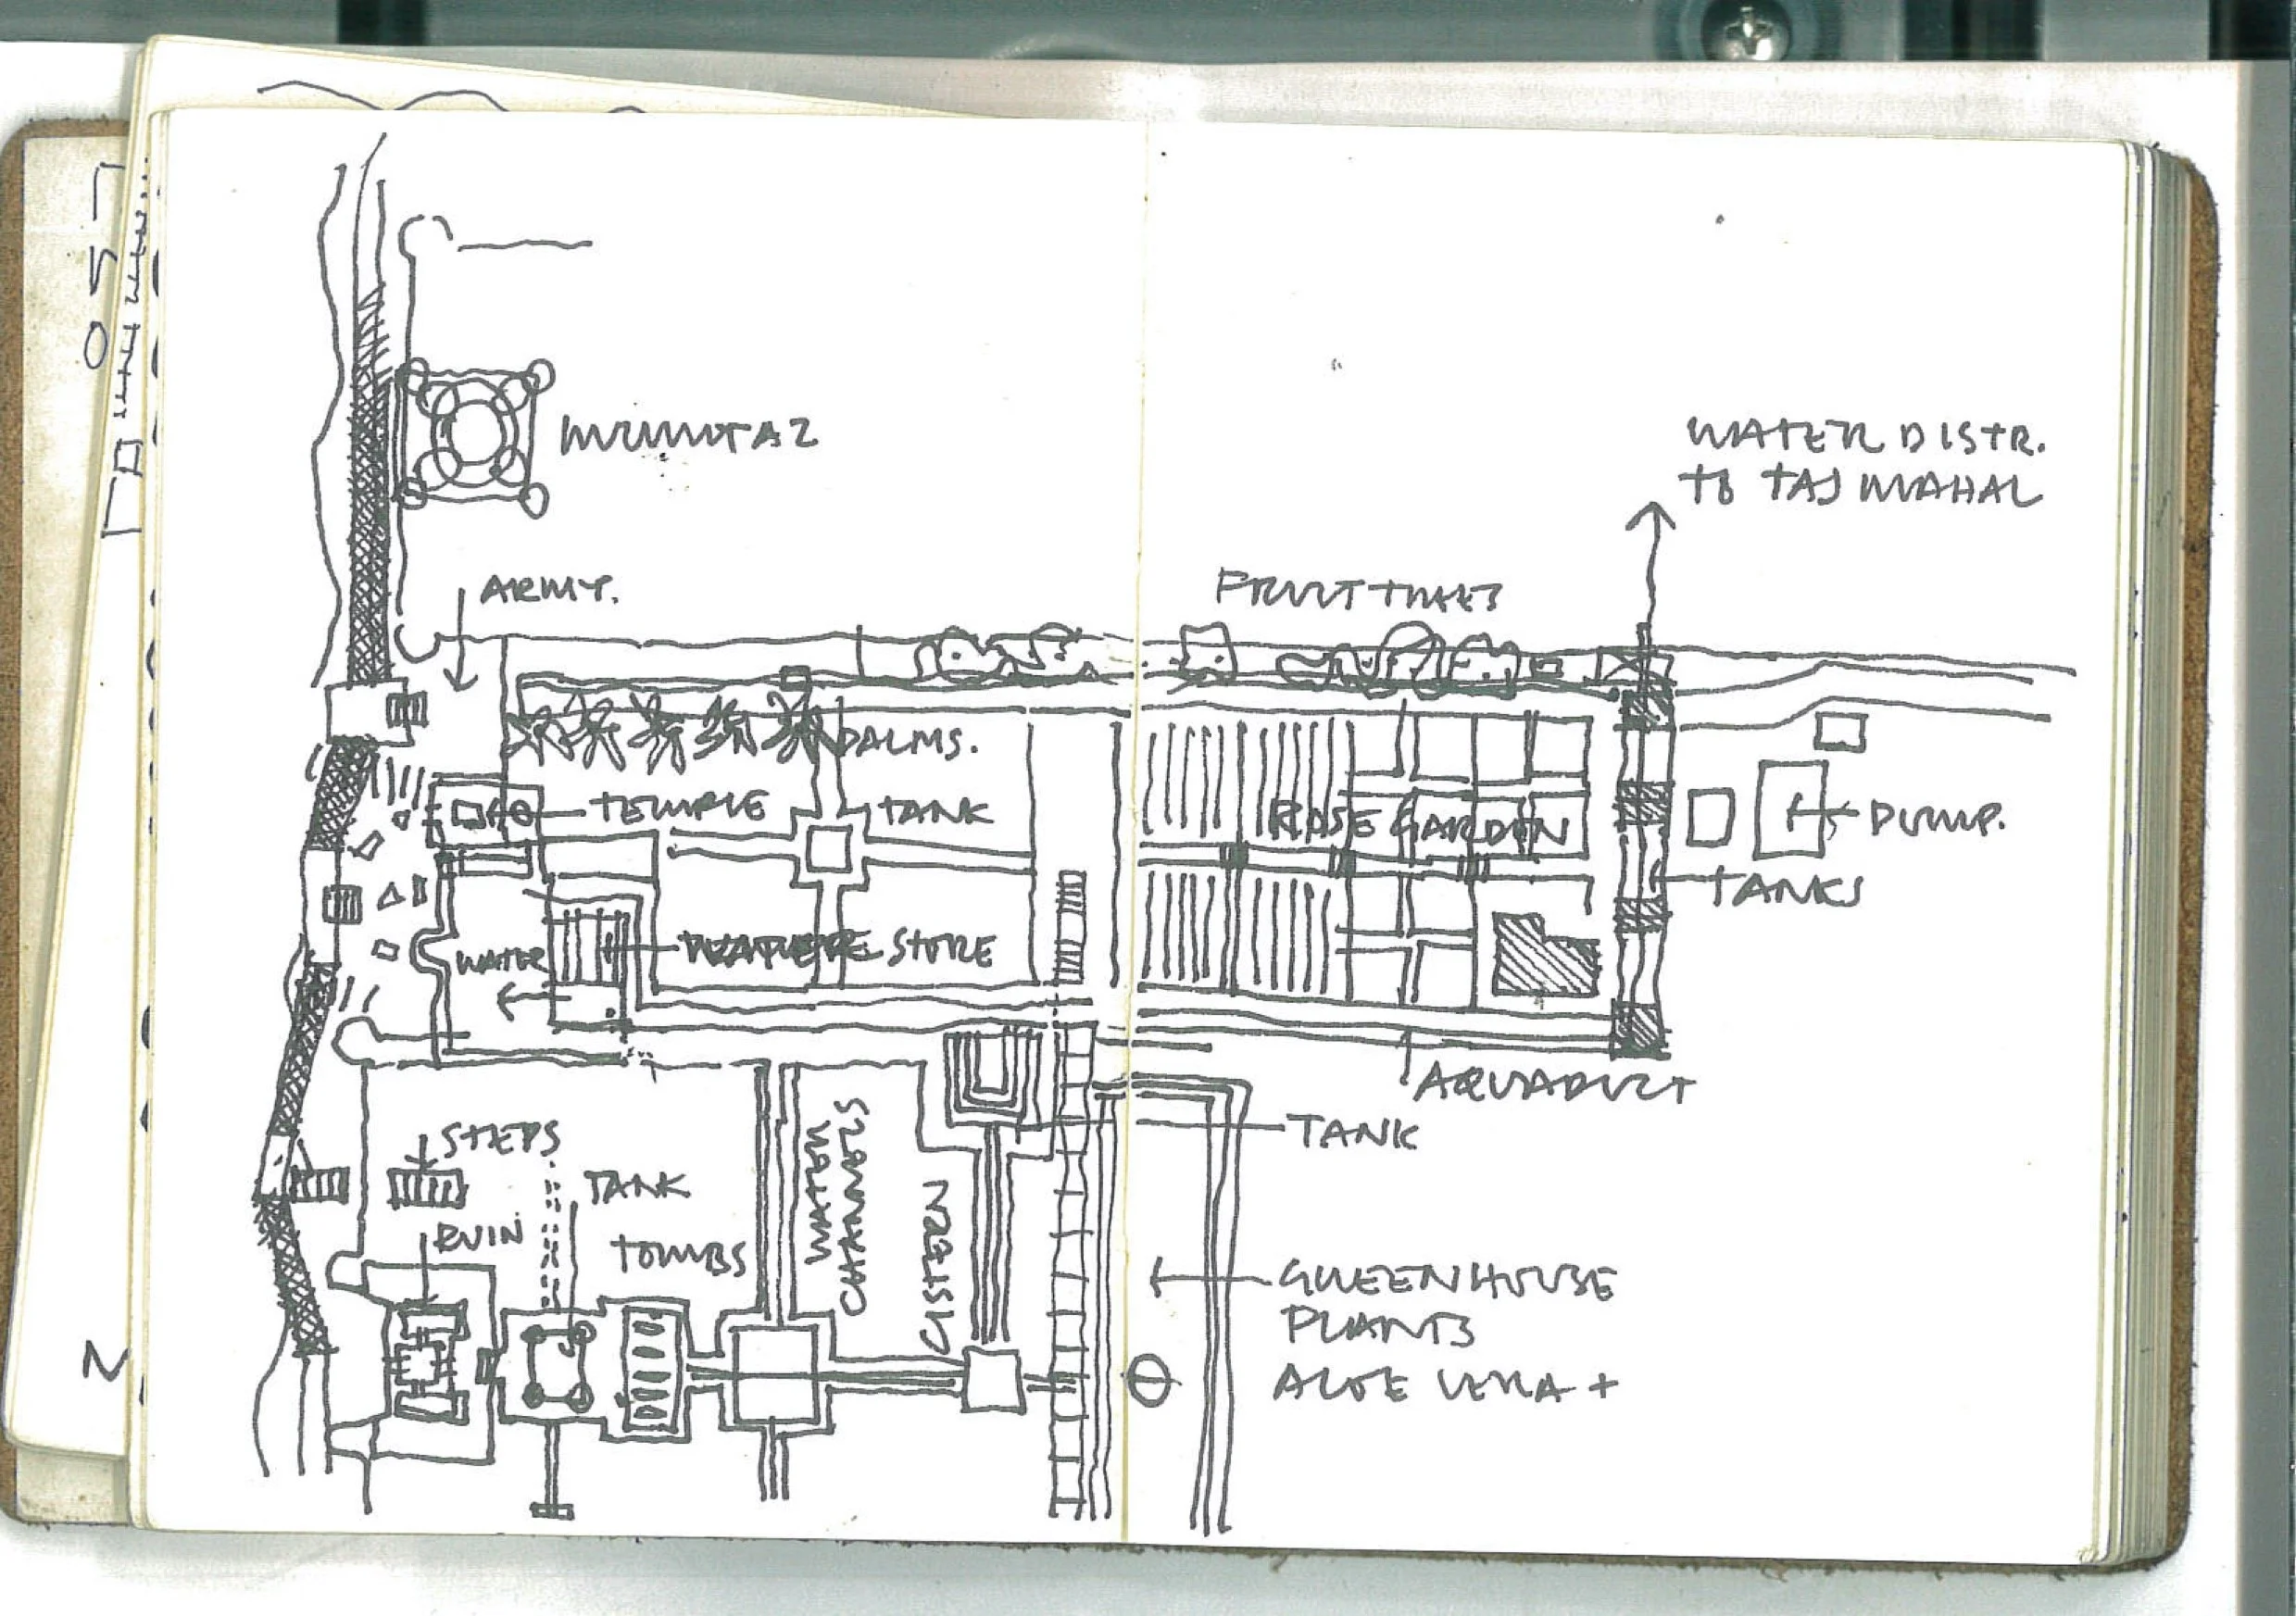 MUMUTAZ
WATER DISTR.
TO TAJ MAHAL
ARMY.
FRUIT TREES
PALMS.
TEMPLE
TANK
ROSE GARDEN
PUMP.
TANKS
WATER
STORE
AQUADUCT
TANK
STEPS
TANK
RUIN
TOMBS
WATER
CHANNELS
CISTERN
GREENHOUSE
PLANTS
ALOE VERA +